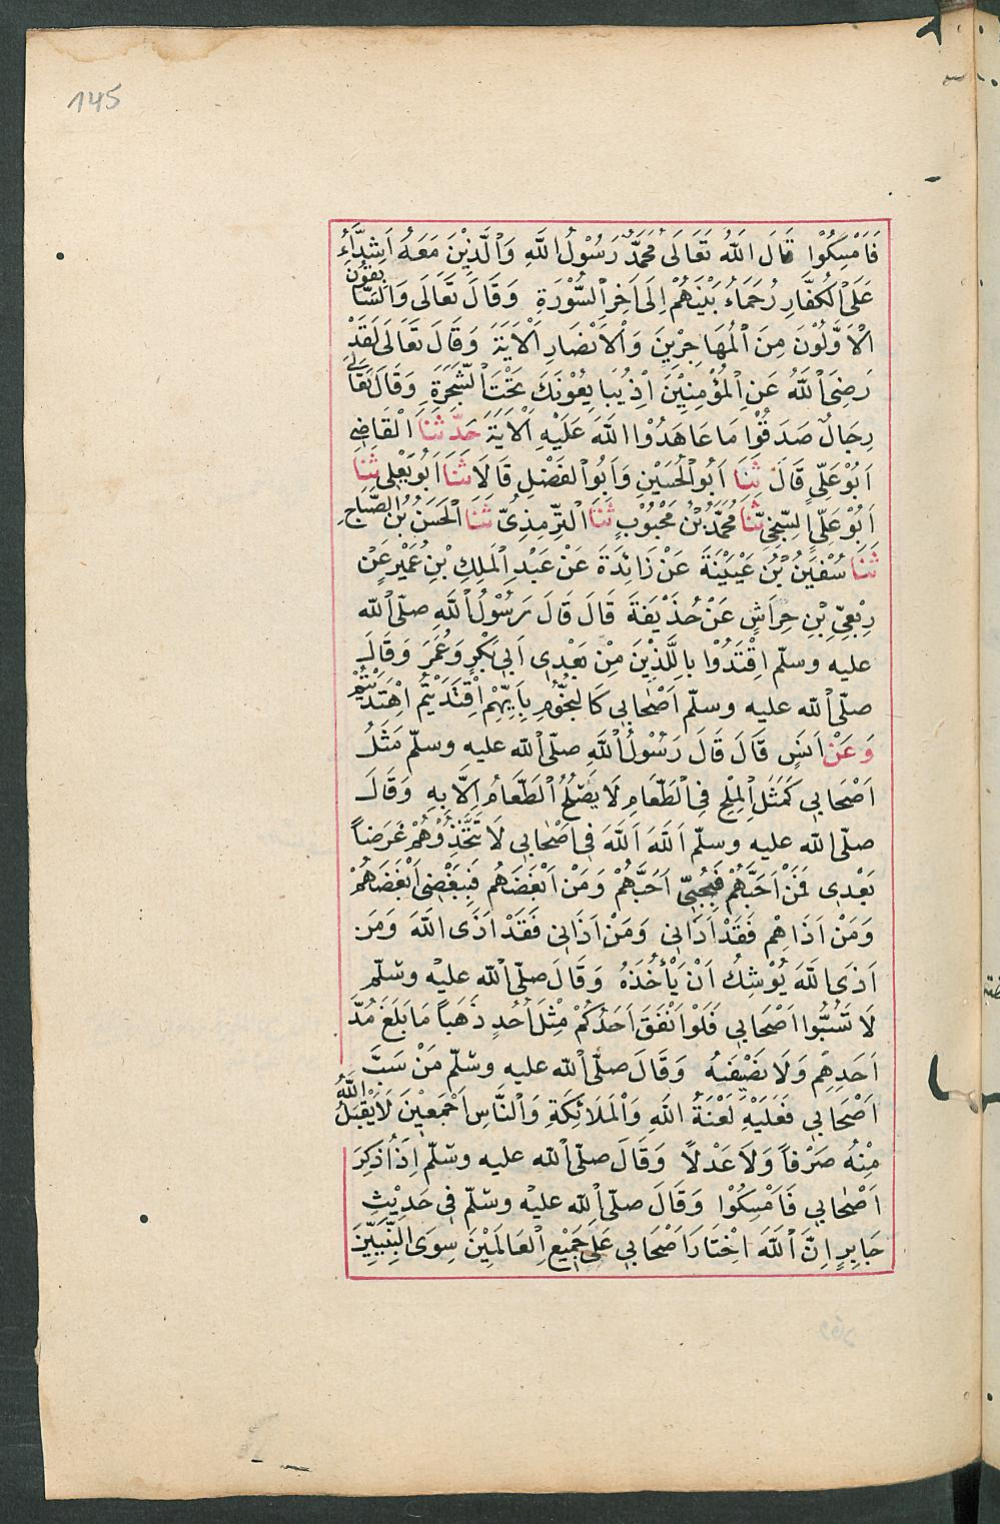 145
فَاَمْسِكُوْا قَالَ اللهُ تَعَالَى مُحَمَّدٌ رَسُوْلُ اللَّهِ وَالَّذِيْنَ مَعَهُ اَشِدَّاءُ
عَلَى الْكُفَّارِ رُحَمَاءُ بَيْنَهُمْ اِلَى اَخِرِ السُّوْرَةِ وَقَالَ تَعَالَى وَالسَّا بِقُوْنَ
الْاَوَّلُوْنَ مِنَ الْمُهَاجِرْيِنَ وَالْاَنْصَارِ الْاَيَةَ وَقَالَ تَعَالَى لَقَدْ
رَضِىَ اللهُ عَنِ الْمُؤْمِنِيْنَ اِذْ يُبَايِعُوْنَكَ تَحْتَ الشَّجَرَةِ وَقَالَ تَعَالَى
رِجَالٌ صَدَقُوْا مَا عَاهَدُوْا اللهَ عَلَيْهِ الْاَيَةَ حَدَّثَنَا الْقَاضِى
اَبُوْ عَلِىّ قَالَ ثَنَا اَبُو الْحُسَيْنِ وَاَبُو الْفَضْلِ قَالَا ثَنَا اَبُو يَعْلِى ثَنَا
اَبُوْ عَلِىّ السِّنْجِىّ ثَنَا مُحَمَّدُ بْنُ مَحْبُوْبٍ ثَنَا التِّرْمِذِىُّ ثَنَا الْحَسَنُ بْنُ الصَّبَاحِ
ثَنَا سُفْيَنُ بْنُ عُيَيْنَةَ عَنْ زَائِدَةَ عَنْ عَبْدِ الْمَلِكِ بْنِ عُمَيْرٍ عَنْ
رِبْعِىِّ بْنِ حِرَاشٍ عَنْ حُذَيْفَةَ قَالَ قَالَ رَسُوْلُ اللَّهِ صلّى الله
عليه وسلّم اِقْتَدُوْا بِاللَّذِيْنَ مِنْ بَعْدِى اَبِى بَكْرٍ وَعُمَرَ وَقَالَ
صلّى الله عليه وسلّم اَصْحَابِى كَالنُّجُوْمِ بِاَيِّهِمْ اِقْتَدَيْتُمْ اِهْتَدَيْتُمْ
وَعَنْ اَنَسٍ قَالَ قَالَ رَسُوْلُ اللَّهِ صلّى الله عليه وسلّم مَثَلُ
اَصْحَابِى كَمَثَلِ الْمِلْحِ فِى الطَّعَامِ لَا يَصْلُحُ الطَّعَامُ اِلَّا بِهِ وَقَالَ
صلّى الله عليه وسلّم اَللهَ اَللهَ فِى اَصْحَابِى لَا تَتَّخِذُوْهُمْ غَرَضاً
بَعْدِى فَمَنْ اَحَبَّهُمْ فَبِحُبِّى اَحَبَّهُمْ وَمَنْ اَبْغَضَهُمْ فَبِبُغْضِى اَبْغَضَهُمْ
وَمَنْ اَذَاهِمْ فَقَدْ اَذَانِى وَمَنْ اَذَانِى فَقَدْ اَذَى اللهَ وَمَن
اَذَى اللهَ يُوْشِكُ اَنْ يَأْخُذَهُ وَقَالَ صلّى الله عليه وسلّم
لَا تَسُبُّوا اَصْحَابِى فَلَوْ اَنْفَقَ اَحَدُكُمْ مِثْلَ اُحُدٍ ذَهَباً مَا بَلَغَ مُدَّ
اَحَدِهِمْ وَلَا نَصْيِفَهُ وَقَالَ صلّى الله عليه وسلّم مَنْ سَبَّ
اَصْحَابِى فَعَلَيْهِ لَعْنَةُ اللهِ وَالْمَلَائِكَةِ وَالنَّاسِ اَجْمَعِيْنَ لَا يَقْبَلُ اللهُ
مِنْهُ صَرْفاً وَلَا عَدْلًا وَقَالَ صلّى الله عليه وسلّم اِذَا ذُكِرَ
اَصْحَابِى فَاَمْسِكُوْا وَقَالَ صلّى الله عليه وسلّم فِى حَدِيْثِ
جَابِرٍ اِنَّ اللهَ اخْتَارَ اَصْحَابِى عَلَى جَمِيْعِ الْعَالَمِيْنَ سِوَى النَّبِيِّيْنَ